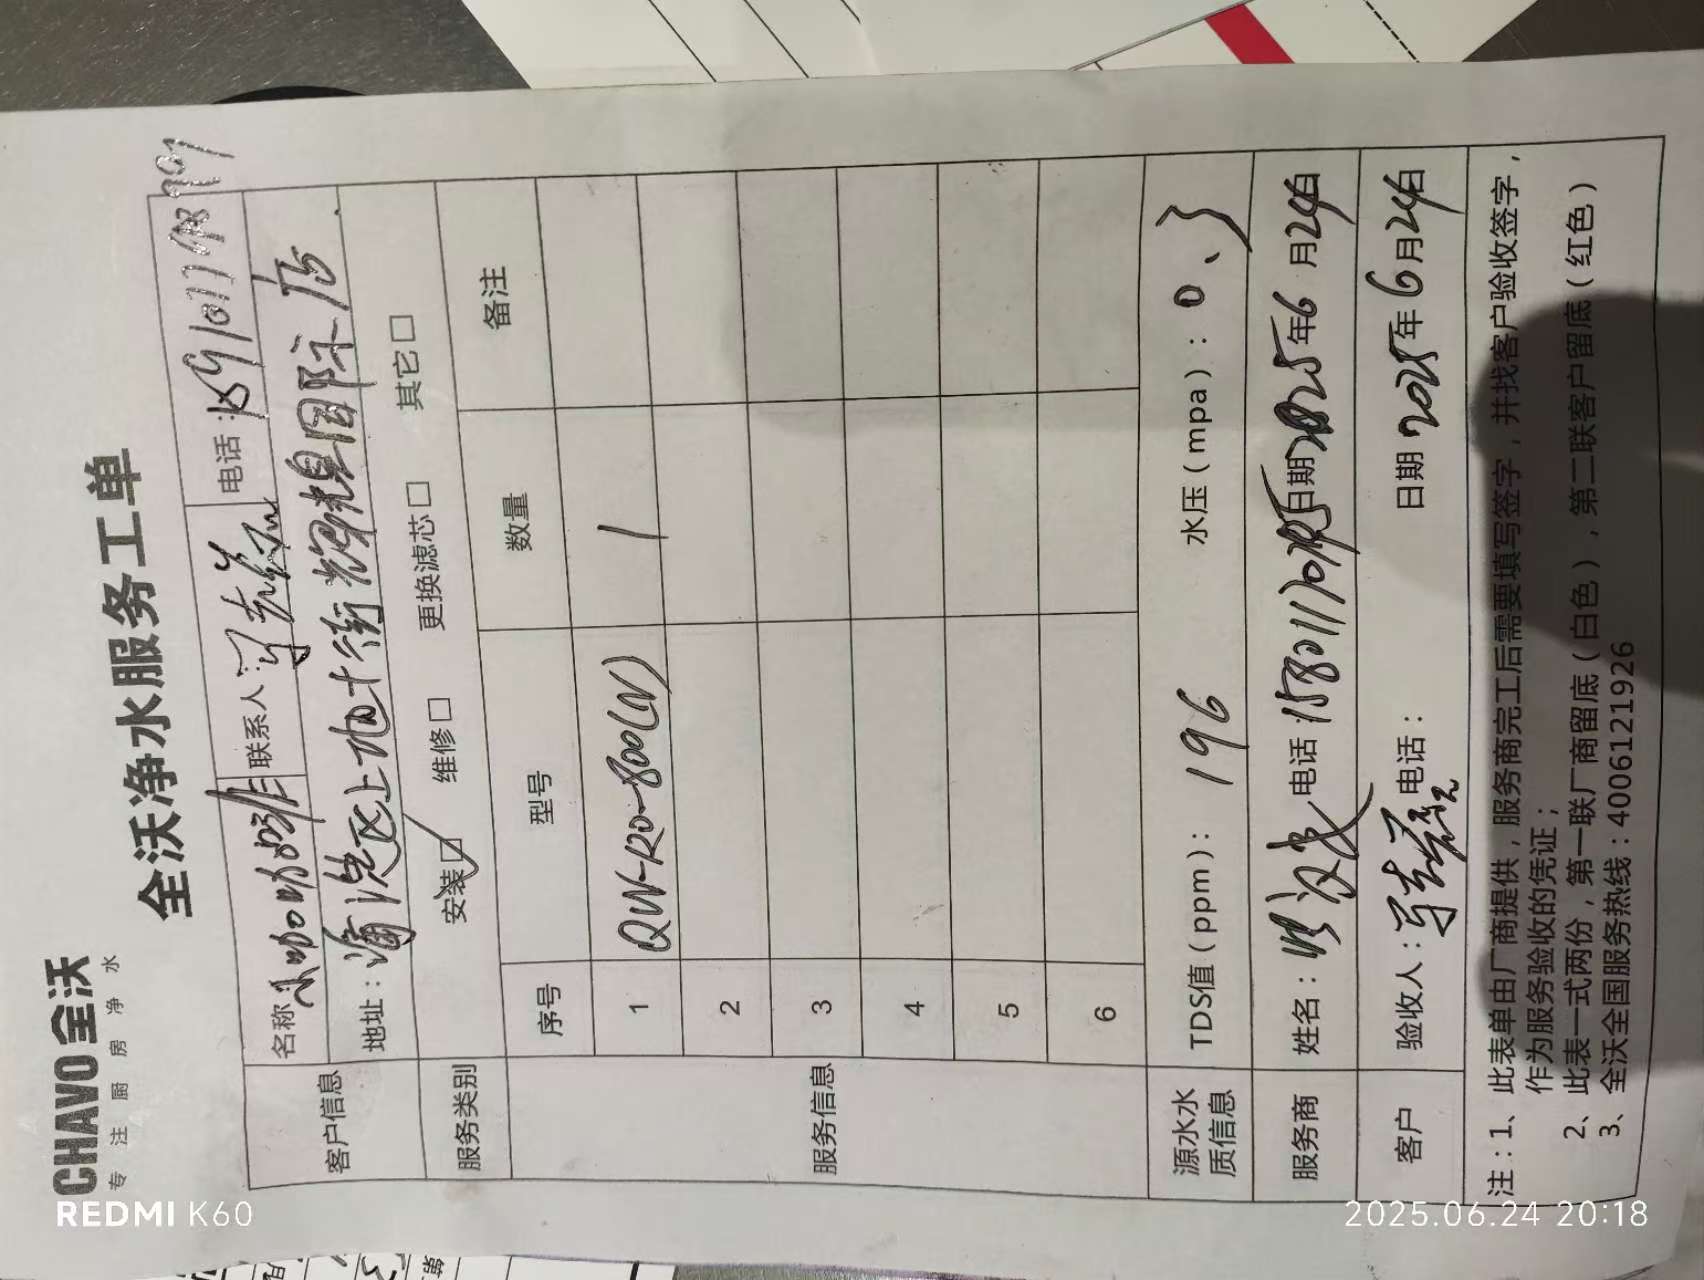 CHAVO 全沃
专注厨房净水
全沃净水服务工单
客户信息 名称 咖啡 联系人 电话：
地址： 海淀区上地十街辉煌国际店
服务类别 安装☑ 维修□ 更换滤芯□ 其它□
服务信息 序号 型号 数量 备注
1 QW-RO-800(N) 1
2
3
4
5
6
源水水质信息 TDS值（ppm）： 196 水压（mpa）：0、3
服务商 姓名： 电话 日期 2025年6月24日
客户 验收人： 电话： 日期 2025年6月24日
注：1、此表单由厂商提供，服务商完工后需要填写签字，并找客户验收签字，
作为服务验收的凭证；
2、此表一式两份，第一联厂商留底（白色），第二联客户留底（红色）
3、全沃全国服务热线：4006121926
REDMI K60
2025.06.24 20:18